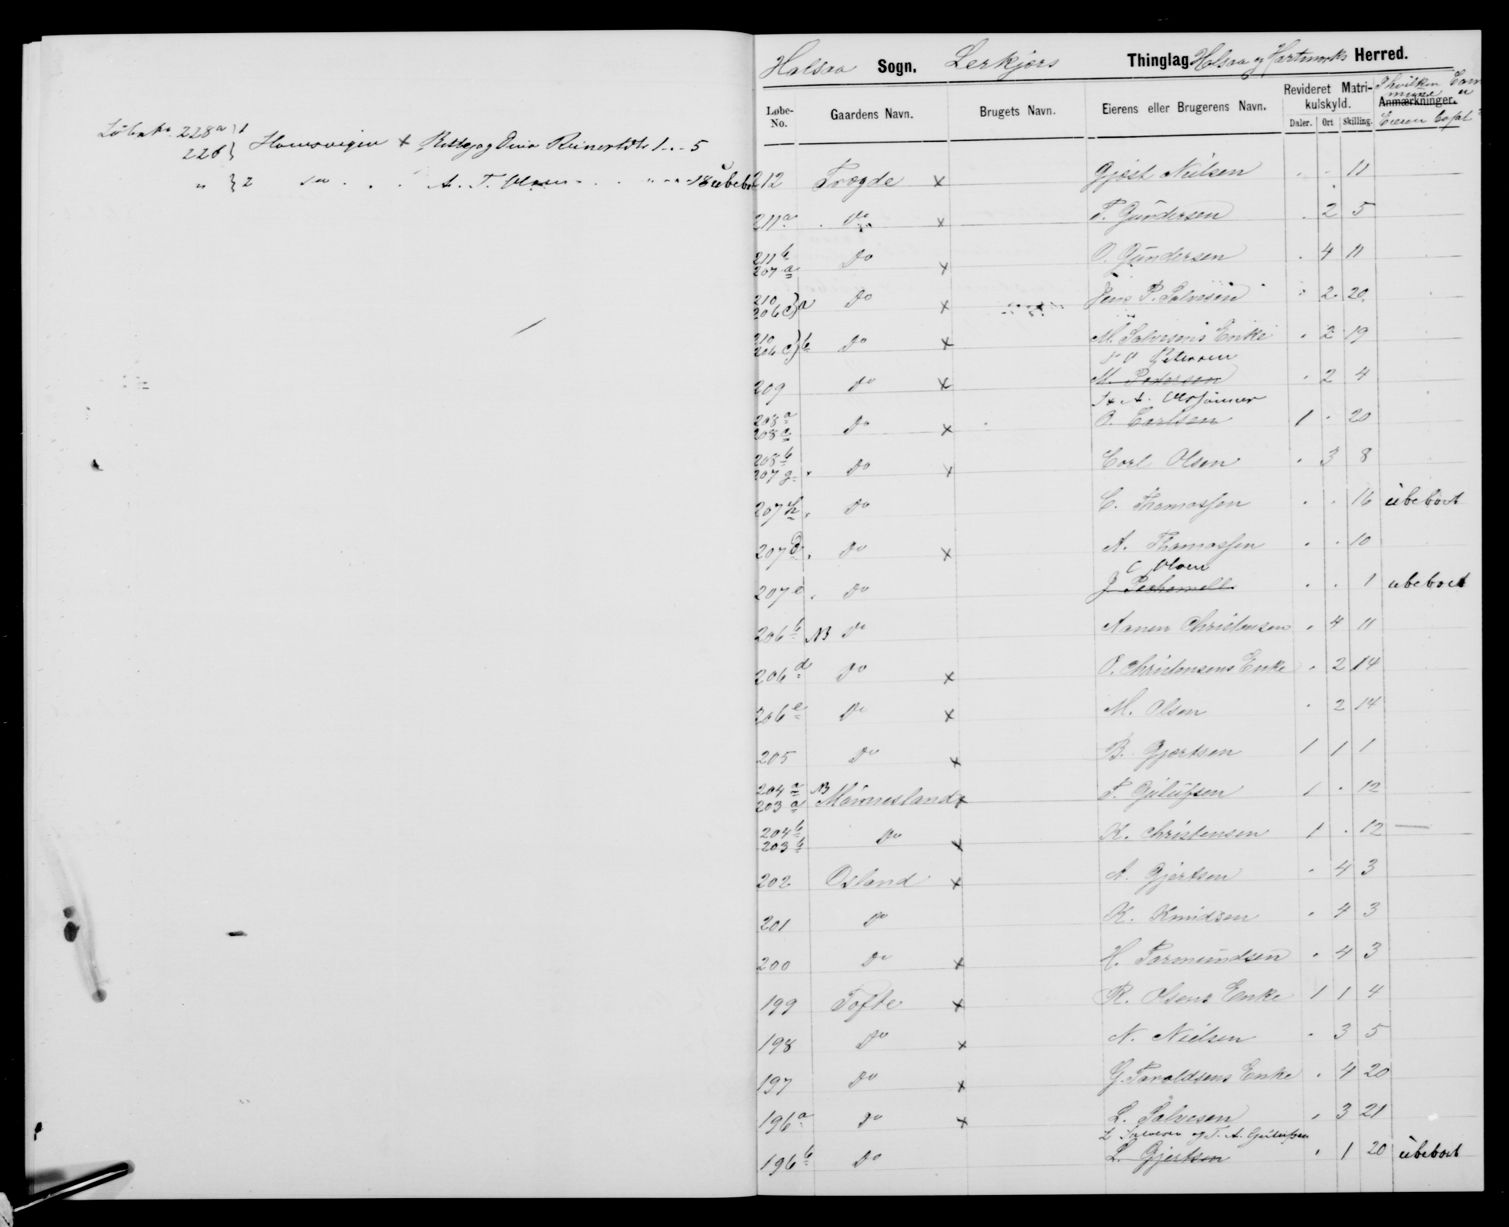 Löbe No 228a } 1 Hamsvigen + 1 . . 5
228 }
" } 2 do . . . A. T. Olsen . . . . . . 18 übebot
Halsaa Sogn, Lerkjærs Thinglag Halsaa og Hartmarks Herred.
Løbe-No. Gaardens Navn. Brugets Navn. Eierens eller Brugerens Navn. Revideret Matrikulskyld. Anmærkninger.
Daler. Ort Skilling.
212 Trægde x Gjest Nielsen . . 11
211a Do x T. Gundersen . 2 5
211b 207a Do x O. Gundersen . 4 11
210 206c } a Do x Jens P. Salvesen . 2 20
210 206c } b Do x M. Salvesens Enke . 2 19
Petersen
209 Do x M. Pedersen . 2 4
208a Do x O. Carlsen 1 . 20
208b 207g Do x Carl Olsen . 3 8
207h Do C. Thomassen . . 16 übeboet
207d Do x A. Thomassen . . 10
C Olsen
207e Do J. . . 1 ubeboet
206b NB Do Aanen Christensen . 4 11
206d Do x O. Christensens Enke . 2 14
206e Do x M. Olsen . 2 14
205 Do x B. Gjertsen 1 1 1
204a 203a NB Mannesland x T. Gülufsen 1 . 12
204b 203b Do x K. Christensen 1 . 12 —
202 Osland x A. Gjertsen . 4 3
201 Do K. Knudsen . 4 3
200 Do x H. Tarmundsen . 4 3
199 Tofte x R. Olsens Enke 1 1 4
198 Do x N. Nielsen . 3 5
197 Do x G. Taraldsens Enke . 4 20
196a Do x L. Salvesen . 3 21
L Salvesen og T. A. Gülufsen
196b Do L. Gjertsen . 1 20 übeboet